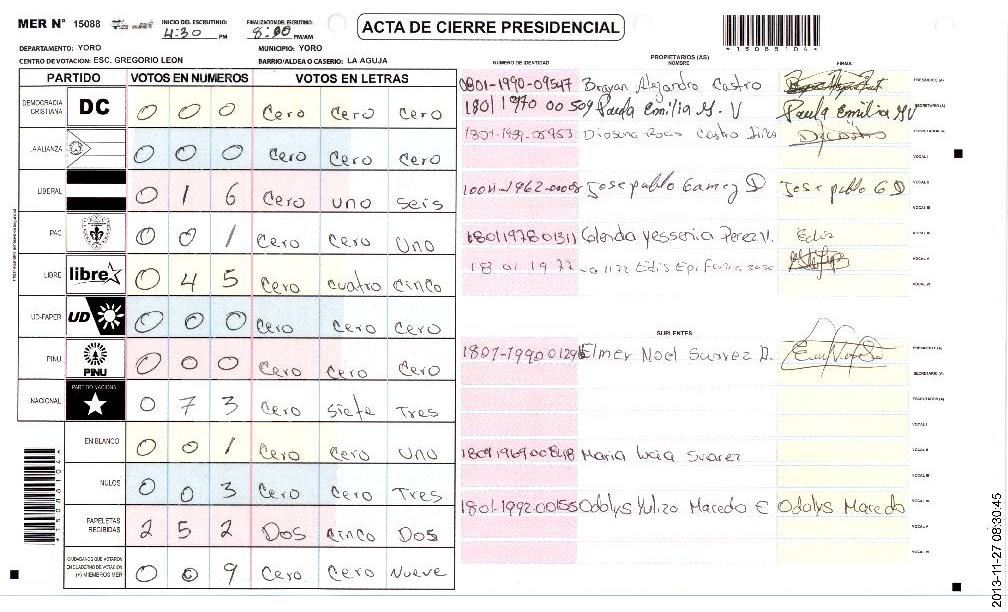 MER N° 15088
INICIO DEL ESCRUTINIO: 4:30 PM
FINALIZACION DEL ESCRUTINIO: PM/AM
ACTA DE CIERRE PRESIDENCIAL
*15088104*
DEPARTAMENTO: YORO
MUNICIPIO: YORO
CENTRO DE VOTACION: ESC. GREGORIO LEON
BARRIO/ALDEA O CASERIO: LA AGUJA
PARTIDO VOTOS EN NUMEROS VOTOS EN LETRAS
DEMOCRACIA CRISTIANA DC 0 0 0 Cero Cero Cero
LA ALIANZA 0 0 0 Cero Cero Cero
LIBERAL 0 1 6 Cero uno seis
PAC 0 0 1 Cero Cero Uno
LIBRE libre 0 4 5 Cero cuatro cinco
UD-FAPER UD 0 0 0 Cero Cero Cero
PINU PINU 0 0 0 Cero Cero Cero
NACIONAL PARTIDO NACIONAL 0 7 3 Cero Siete Tres
EN BLANCO 0 0 1 Cero Cero uno
NULOS 0 0 3 Cero Cero Tres
PAPELETAS RECIBIDAS 2 5 2 Dos cinco Dos
CIUDADANOS QUE VOTARON EN CUADERNO DE VOTACION (+) MIEMBROS MER 0 0 9 Cero Cero Nueve
*15088104*
NUMERO DE IDENTIDAD
PROPIETARIOS (AS)
NOMBRE
FIRMA
0801-1990-09547 Brayan Alejandro Castro PRESIDENTE (A)
1801 1970 00509 Paula Emilia G. V Paula Emilia GV SECRETARIO (A)
Castro ESCRUTADOR (A)
VOCAL I
Jose pablo Gamez D Jose pablo G D VOCAL II
VOCAL III
1801197801311 Glenda Yessenia Perez V. VOCAL IV
1801 19 Edis VOCAL V
VOCAL VI
SUPLENTES
Elmer Noel Suarez A. PRESIDENTE (A)
SECRETARIO (A)
ESCRUTADOR (A)
VOCAL I
1801196900848 Maria Lucia Suarez VOCAL II
VOCAL III
1801-1992-00155 Odolys Yuliza Macedo E Odolys Macedo VOCAL IV
VOCAL V
VOCAL VI
2013-11-27 08:30:45